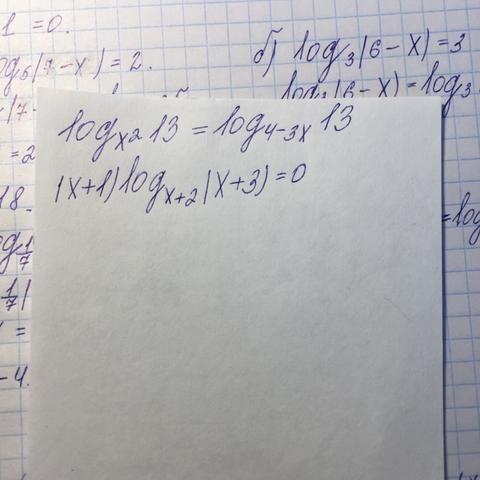 1 =0.
log₆(7-x)=2.
б) log₃(6-x)=3
log₃(6-x)=log₃
(7-
=2
18.
log 1/7
1/7
=
-4.
=log
logₓ₂ 13 = log₄₋₃ₓ 13
(x+1) logₓ₊₂ (x+3)=0